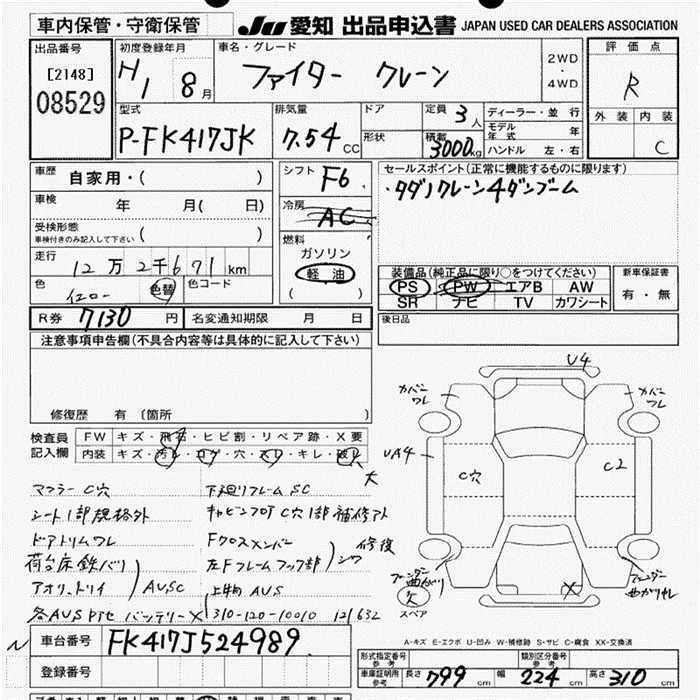 車内保管・守衛保管 JU 愛知 出品申込書 JAPAN USED CAR DEALERS ASSOCIATION
出品番号 初度登録年月 車名・グレード 評価点
[2148] H1 8月 ファイター クレーン 2WD・4WD R
08529
型式 排気量 ドア 定員 3人 ディーラー・並行 外装 内装
P-FK417JK 7.54 CC 形状 積載 3000kg モデル年式 年
ハンドル 左・右 C
車歴 自家用・( ) シフト F6 セールスポイント(正常に機能するものに限ります)
車検 年 月( 日) 冷房 AC ・タダノクレーン4ダンブーム
受検形態
車検付きのみ記入して下さい ( ) 燃料
ガソリン
走行 12万2千671km 軽油 装備品(純正品に限り○をつけてください) 新車保証書
色 イエロー 色替 色コード ( ) PS PW エアB AW 有・無
SR ナビ TV カワシート
R券 7130円 名変通知期限 月 日 後日品
注意事項申告欄(不具合内容等は具体的に記入して下さい)
修復歴 有 (箇所 )
U4
カバーワレ カバーワレ
検査員 FW キズ・飛石・ヒビ割・リペア跡・X要
記入欄 内装 キズ・汚れ・コゲ・穴・スレ・キレ・破れ 大
UA4 C穴 C2
マフラーC穴 下廻リフレームSC
シート1部規格外 キャビンフロアC穴1部補修アト
ドアトリムワレ Fクロスメンバー
荷台床鉄バリ 左Fフレームフック部 シワ 修復
アオリ、トリイ AUSC 上物AUS
各AUS バッテリーX 310-120-10010 121632
フェンダー曲がり フェンダー曲がりキレ
欠 X
スペア
車台番号 FK417J524989
登録番号
A-キズ E-エクボ U-凹み W-補修跡 S-サビ C-腐食 XX-交換済
形式指定番号 参考 類別区分番号 参考
車庫証明用 参考 長さ 799cm 幅 224cm 高さ 310cm